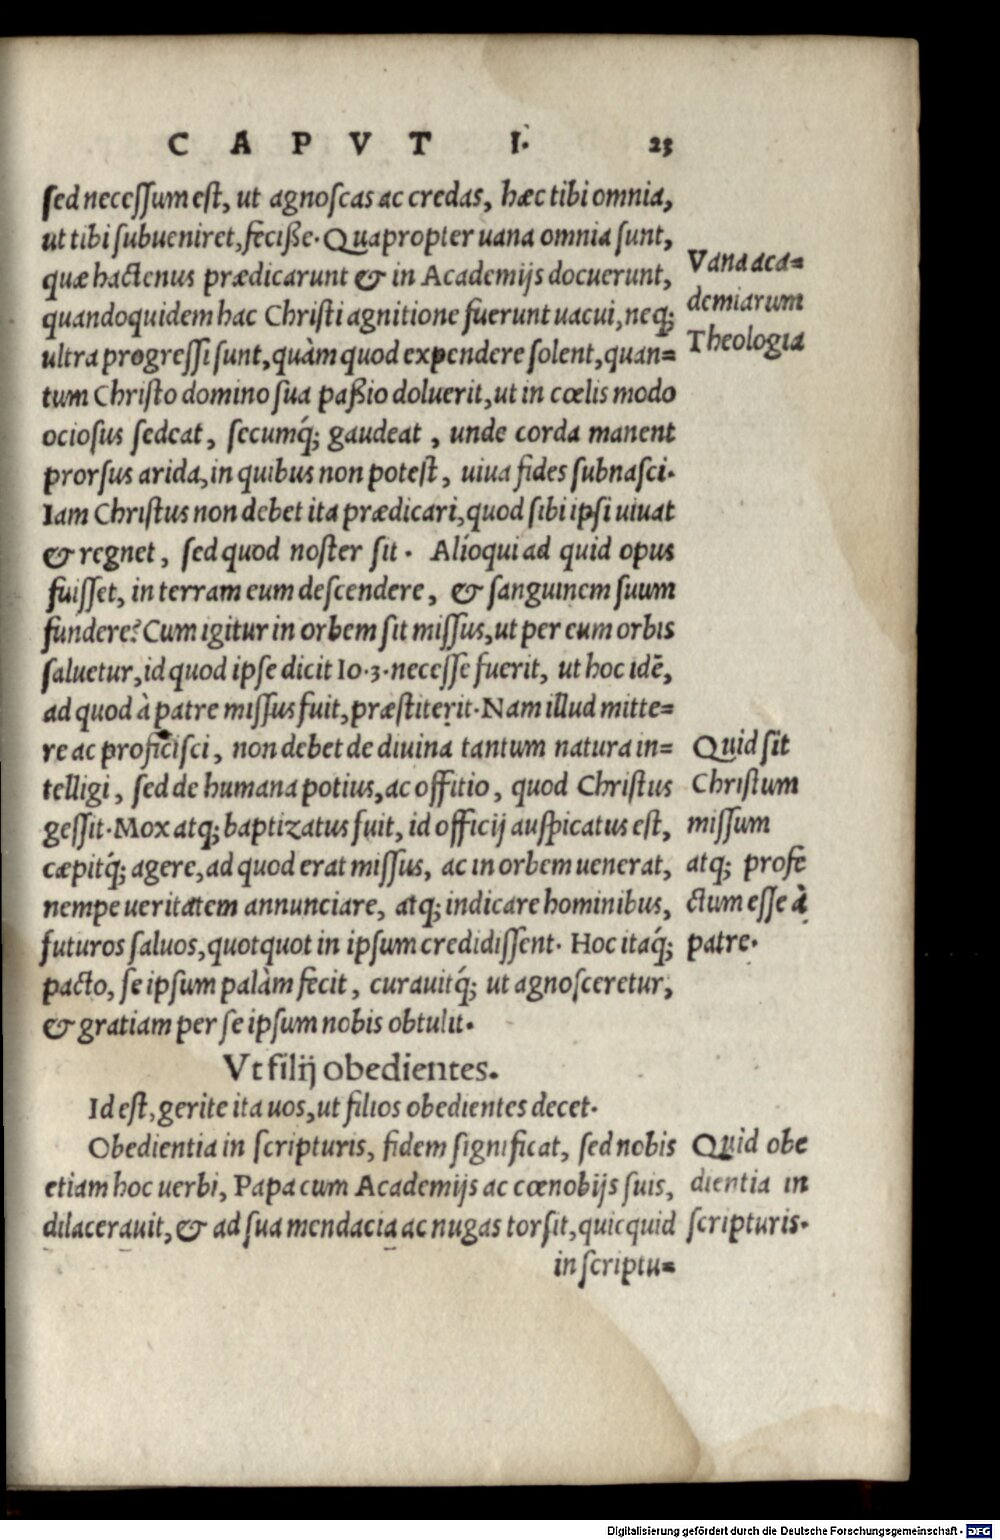 CAPVT I. 23
sed necessum est, ut agnoscas ac credas, hæc tibi omnia,
ut tibi subueniret, feciße. Quapropter uana omnia sunt,
quæ hactenus prædicarunt & in Academijs docuerunt,
quandoquidem hac Christi agnitione fuerunt uacui, neq;
ultra progressi sunt, quàm quod expendere solent, quan=
tum Christo domino sua paßio doluerit, ut in cœlis modo
ociosus sedeat, secumq́; gaudeat, unde corda manent
prorsus arida, in quibus non potest, uiua fides subnasci.
Iam Christus non debet ita prædicari, quod sibi ipsi uiuat
& regnet, sed quod noster sit. Alioqui ad quid opus
fuisset, in terram eum descendere, & sanguinem suum
fundere? Cum igitur in orbem sit missus, ut per eum orbis
saluetur, id quod ipse dicit Io.3. necesse fuerit, ut hoc idē,
ad quod à patre missus fuit, præstiterit. Nam illud mitte=
re ac proficisci, non debet de diuina tantum natura in=
telligi, sed de humana potius, ac offitio, quod Christus
gessit. Mox atq; baptizatus fuit, id officij auspicatus est,
cæpitq́; agere, ad quod erat missus, ac in orbem uenerat,
nempe ueritatem annunciare, atq; indicare hominibus,
futuros saluos, quotquot in ipsum credidissent. Hoc itaq́;
pacto, se ipsum palàm fecit, curauitq́; ut agnosceretur,
& gratiam per se ipsum nobis obtulit.
Vt filij obedientes.
Id est, gerite ita uos, ut filios obedientes decet.
Obedientia in scripturis, fidem significat, sed nobis
etiam hoc uerbi, Papa cum Academijs ac cœnobijs suis,
dilacerauit, & ad sua mendacia ac nugas torsit, quicquid
in scriptu=
Vana aca=
demiarum
Theologia
Quid sit
Christum
missum
atq; profe
ctum esse à
patre.
Quid obe
dientia in
scripturis.
Digitalisierung gefördert durch die Deutsche Forschungsgemeinschaft - DFG